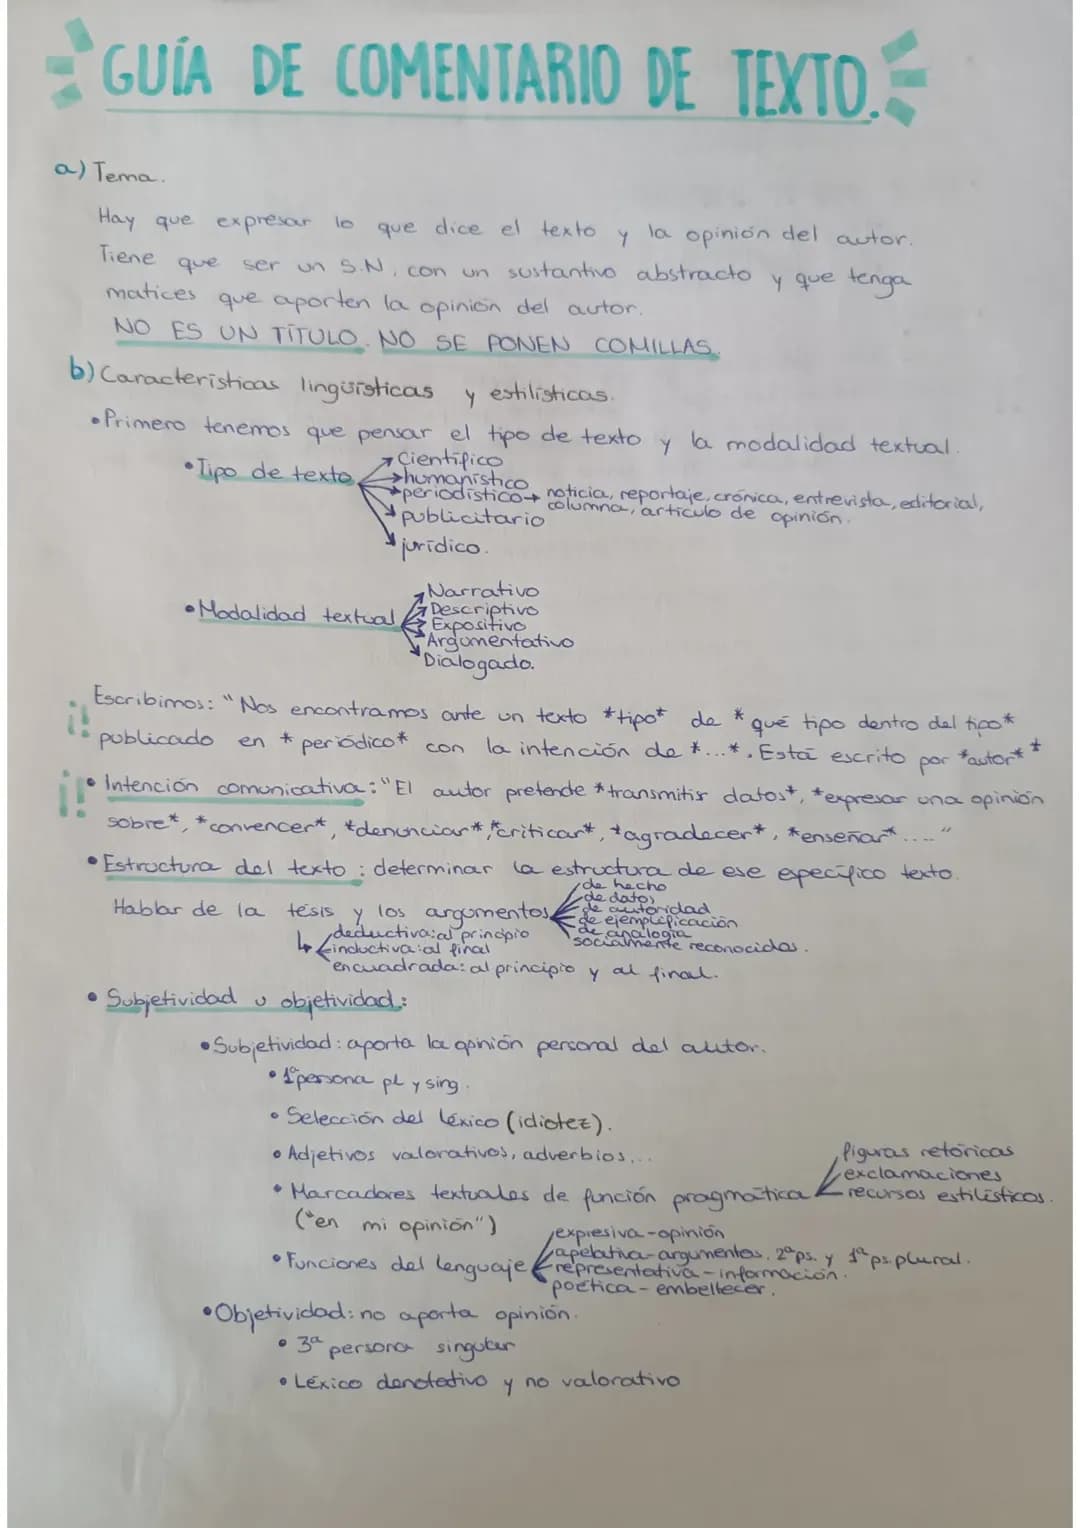 GUÍA DE COMENTARIO DE TEXTO.
a) Tema.
Hay que expresar lo que dice el texto y la opinión del autor.
Tiene que ser un S.N, con un sustantivo abstracto y que tenga
matices que aporten la opinión del autor.
NO ES UN TÍTULO. NO SE PONEN COMILLAS.
b) Características lingüísticas y estilísticas.
• Primero tenemos que pensar el tipo de texto y la modalidad textual.
• Tipo de texto
Científico
humanístico
periodístico → noticia, reportaje, crónica, entrevista, editorial,
columna, artículo de opinión.
publicitario
jurídico.
• Modalidad textual
Narrativo
Descriptivo
Expositivo
Argumentativo
Dialogado.
¡! Escribimos: "Nos encontramos ante un texto *tipo* de *qué tipo dentro del tipo*
publicado en *periódico* con la intención de *...*. Está escrito por *autor* *
¡! • Intención comunicativa: "El autor pretende *transmitir datos*, *expresar una opinión
sobre*, *convencer*, *denunciar*, *criticar*, *agradecer*, *enseñar* ...."
• Estructura del texto: determinar la estructura de ese específico texto.
Hablar de la tesis y los argumentos
de hecho
de datos
de autoridad
de ejemplificación
de analogía
socialmente reconocidos.
deductiva: al principio
inductiva: al final
encuadrada: al principio y al final.
• Subjetividad u objetividad:
• Subjetividad: aporta la opinión personal del autor.
• 1ª persona pl y sing.
• Selección del léxico (idiotez).
• Adjetivos valorativos, adverbios...
• Marcadores textuales de función pragmática
("en mi opinión")
figuras retóricas
exclamaciones
recursos estilísticos.
• Funciones del lenguaje
expresiva - opinión
apelativa - argumentos. 2ª ps. y 1ª ps. plural.
representativa - información.
poética - embellecer.
• Objetividad: no aporta opinión.
• 3ª persona singular
• Léxico denotativo y no valorativo